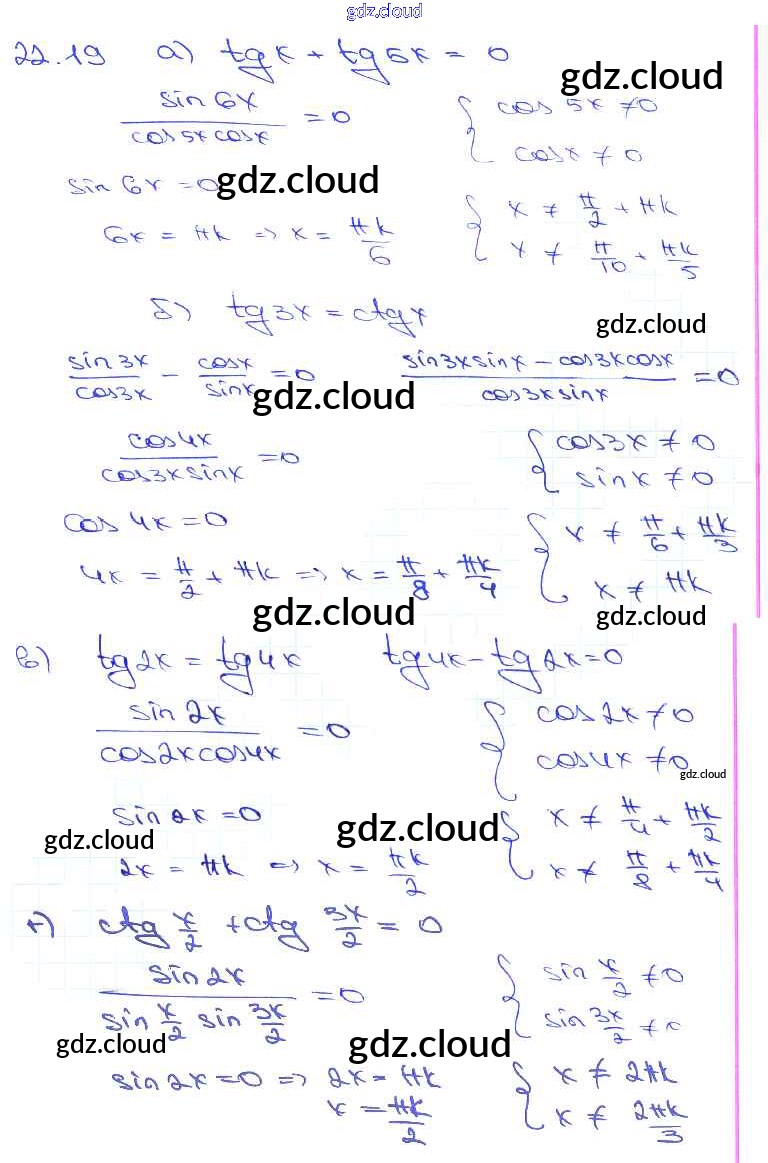 gdz.cloud
22.19 а) tgx + tg5x = 0
gdz.cloud
sin6x / cos5x cosx = 0 { cos 5x ≠ 0
cosx ≠ 0
sin 6x = 0 gdz.cloud
6x = πk => x = πk/6 { x ≠ π/2 + πk
x ≠ π/10 + πk/5
б) tg3x = ctgx
gdz.cloud
sin3x/cos3x - cosx/sinx = 0 sin3x sinx - cos3x cosx / cos3x sinx = 0
gdz.cloud
cos4x / cos3x sinx = 0 { cos3x ≠ 0
sinx ≠ 0
cos 4x = 0
4x = π/2 + πk => x = π/8 + πk/4 { x ≠ π/6 + πk/3
x ≠ πk
gdz.cloud gdz.cloud
в) tg2x = tg4x tg4x - tg2x = 0
sin2x / cos2x cos4x = 0 { cos2x ≠ 0
cos4x ≠ 0
gdz.cloud
sin 2x = 0
gdz.cloud gdz.cloud
2x = πk => x = πk/2 { x ≠ π/4 + πk/2
x ≠ π/8 + πk/4
г) ctg x/2 + ctg 3x/2 = 0
sin2x / sin x/2 sin 3x/2 = 0 { sin x/2 ≠ 0
sin 3x/2 ≠ 0
gdz.cloud gdz.cloud
sin2x = 0 => 2x = πk { x ≠ 2πk
x = πk/2 x ≠ 2πk/3